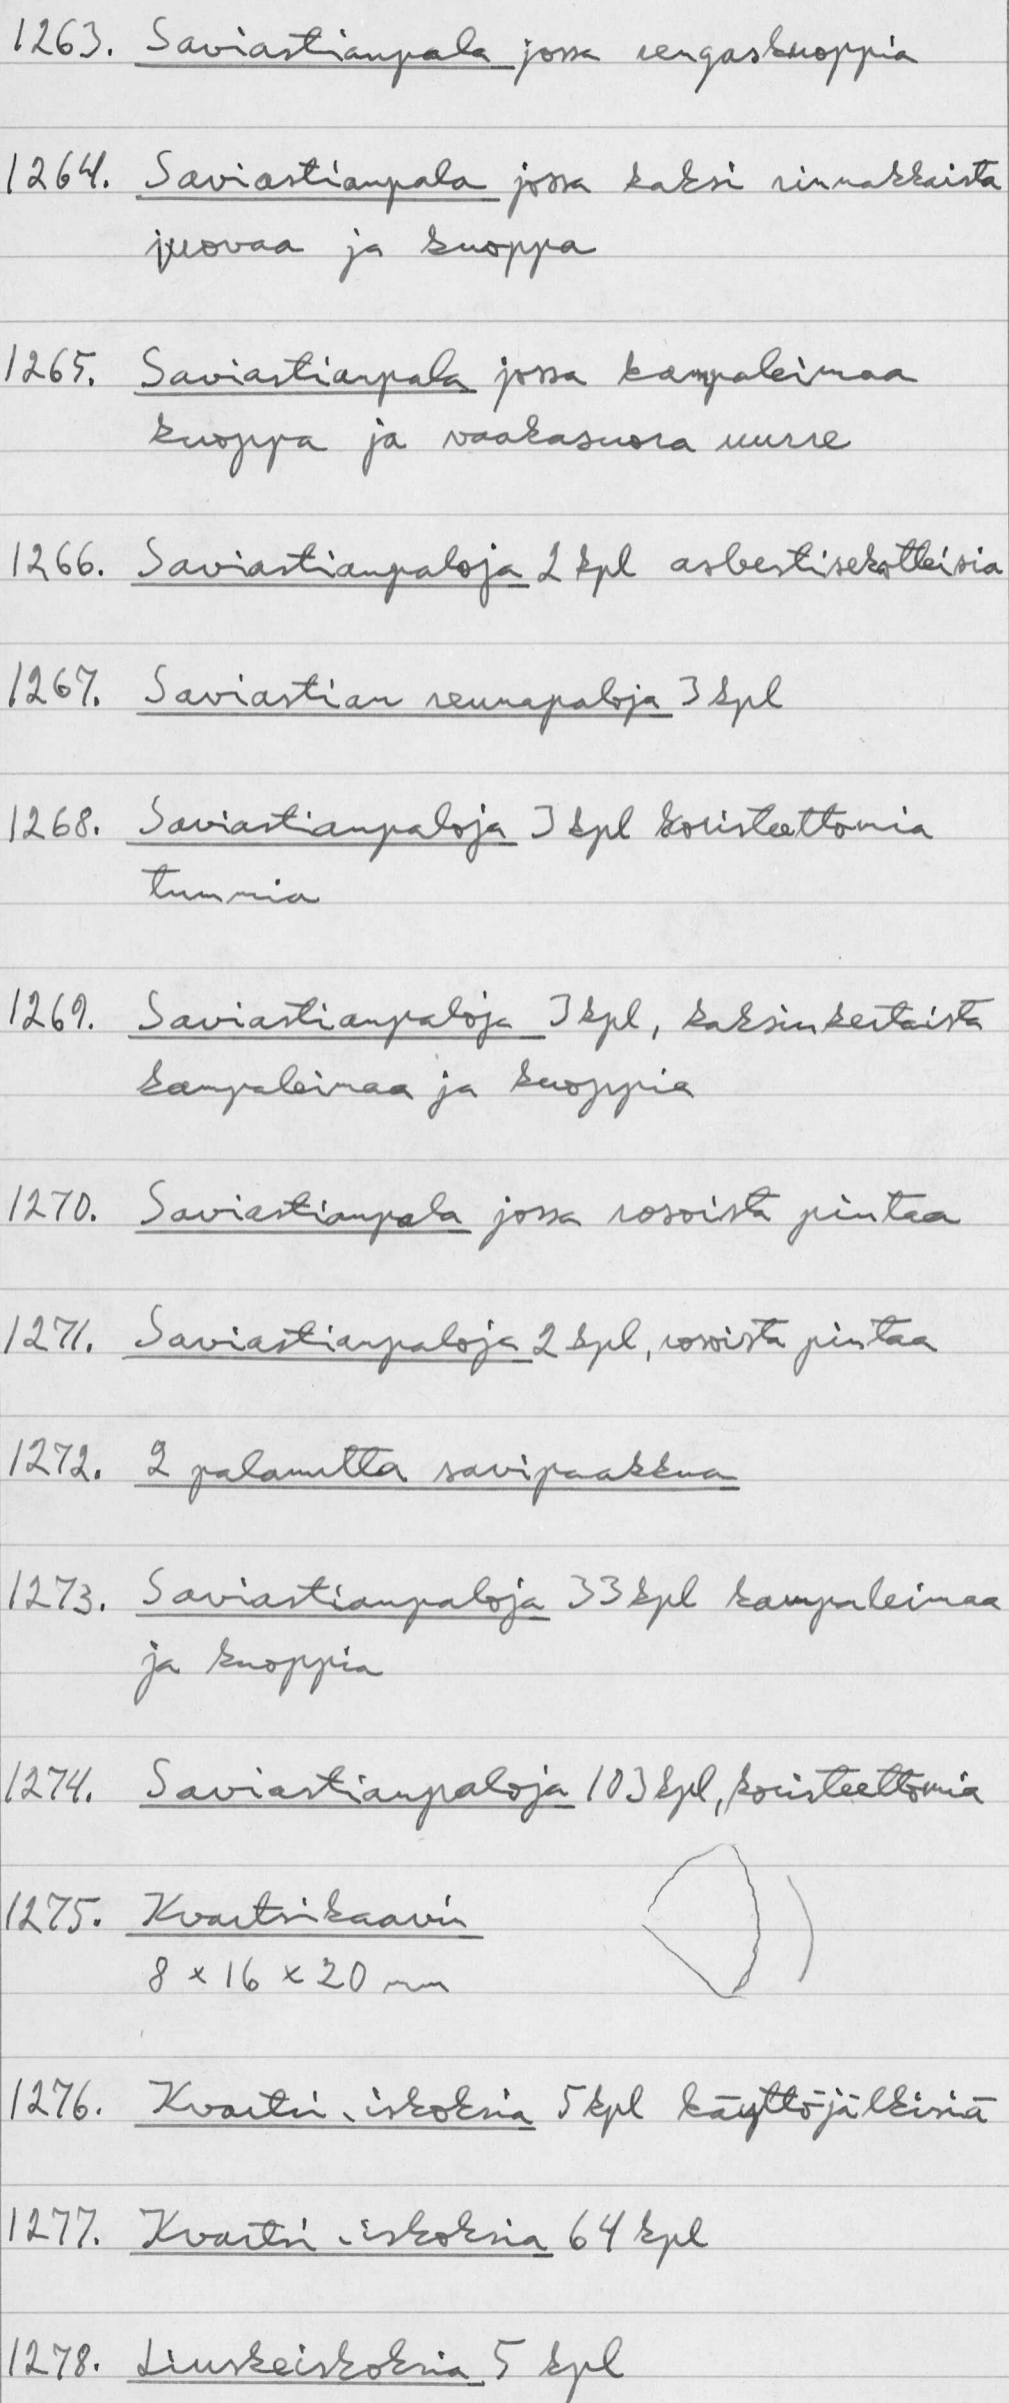 1263. Saviastianpala jossa rengaskuoppia
1264. Saviastianpala jossa kaksi rinnakkaista
juovaa ja kuoppa
1265. Saviastianpala jossa kampaleimaa
kuoppa ja vaakasuora uurre
1266. Saviastianpaloja 2 kpl asbestisekotteisia
1267. Saviastian reunapaloja 3 kpl
1268. Saviastianpaloja 3 kpl koristeettomia
tummia
1269. Saviastianpaloja 3 kpl, kaksinkertaista
kampaleimaa ja kuoppia
1270. Saviastianpala jossa rosoista pintaa
1271. Saviastianpaloja 2 kpl, rosoista pintaa
1272. 2 palanutta savipaakkua
1273. Saviastianpaloja 33 kpl kampaleimaa
ja kuoppia
1274. Saviastianpaloja 103 kpl, koristeettomia
1275. Kvartsikaavin
8 x 16 x 20 mm
1276. Kvartsi-iskoksia 5 kpl käyttöjälkisiä
1277. Kvartsi-iskoksia 64 kpl
1278. Liuskeiskoksia 5 kpl